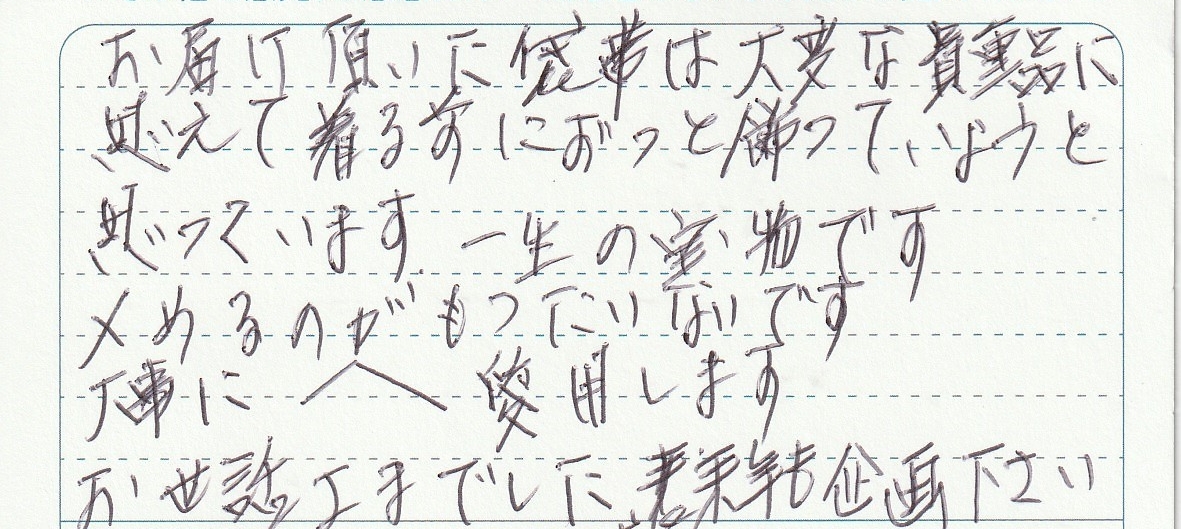 お届け頂いた袋帯は大変な貴重品に
思えて着る前にずっと飾っていようと
思っています 一生の宝物です
〆めるのがもったいないです
大事に 愛用します
お世話さまでした 来年も企画下さい